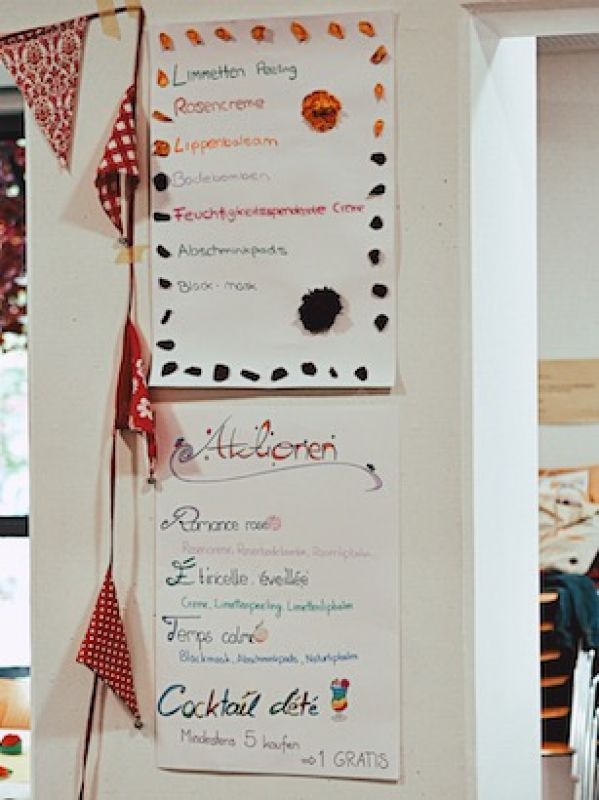 Limmetten Peeling
Rosencreme
Lippenbalsam
Badebomben
Feuchtigkeitsspendende Creme
Abschminkpads
Black-mask
Romance rosé
Rosencreme, Rosenbadebombe, Rosenlipbalm
Étincelle éveillée
Creme, Limettenpeeling, Limettenlipbalm
Temps calme
Blackmask, Abschminkpads, Naturlipbalm
Cocktail d'été
Mindestens 5 kaufen
⇒ 1 GRATIS